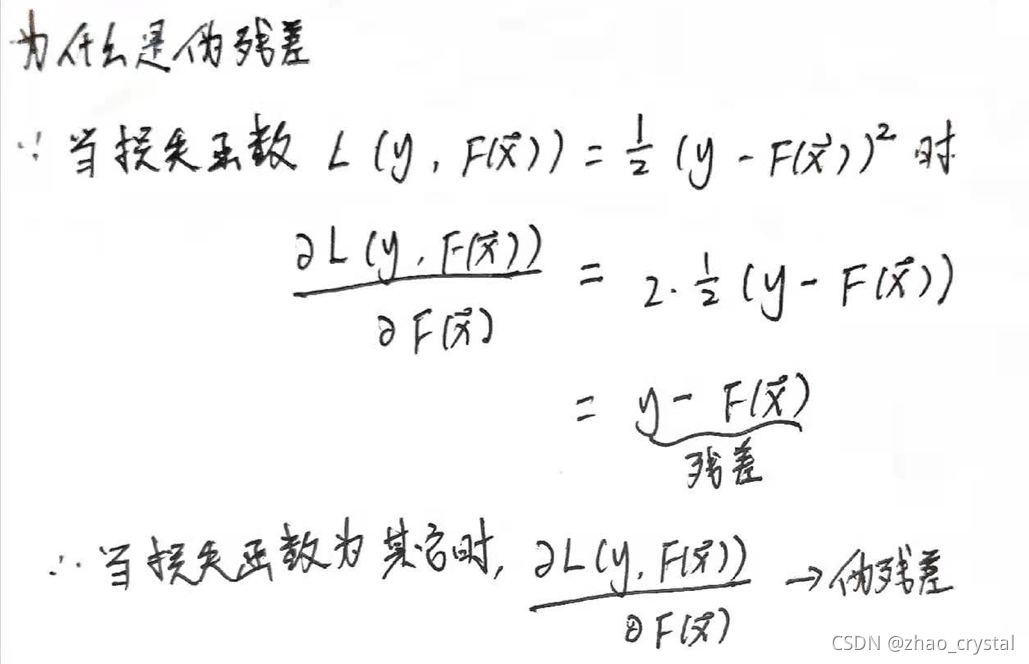 为什么是伪残差
∵ 当损失函数 L(y, F(x⃗)) = ½ (y - F(x⃗))² 时
∂L(y, F(x⃗)) / ∂F(x⃗) = 2·½ (y - F(x⃗))
= y - F(x⃗)
残差
∴ 当损失函数为其它时, ∂L(y, F(x⃗)) / ∂F(x⃗) → 伪残差
CSDN @zhao_crystal